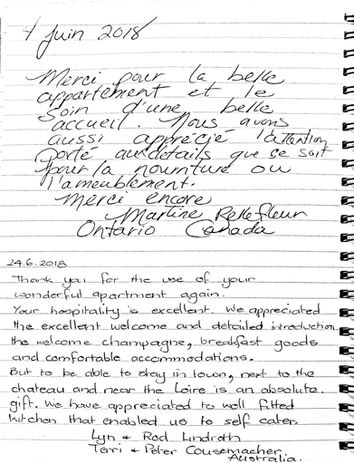 7 Juin 2018
Merci pour la belle
appartement et le
soin d'une belle
accueil. Nous avons
aussi apprécié l'attention
porté aux détails que ce soit
pour la nourriture ou
l'ameublement.
Merci encore
Martine Bellefleur
Ontario Canada
24.6.2018
Thank you for the use of your
wonderful apartment again.
Your hospitality is excellent. We appreciated
the excellent welcome and detailed introduction,
the welcome champagne, breakfast goods
and comfortable accommodations.
But to be able to stay in town, next to the
chateau and near the Loire is an absolute.
gift. We have appreciated to well fitted
kitchen that enabled us to self cater.
Lyn & Rod Lindroth
Terri & Peter Cousemacher
Australia.